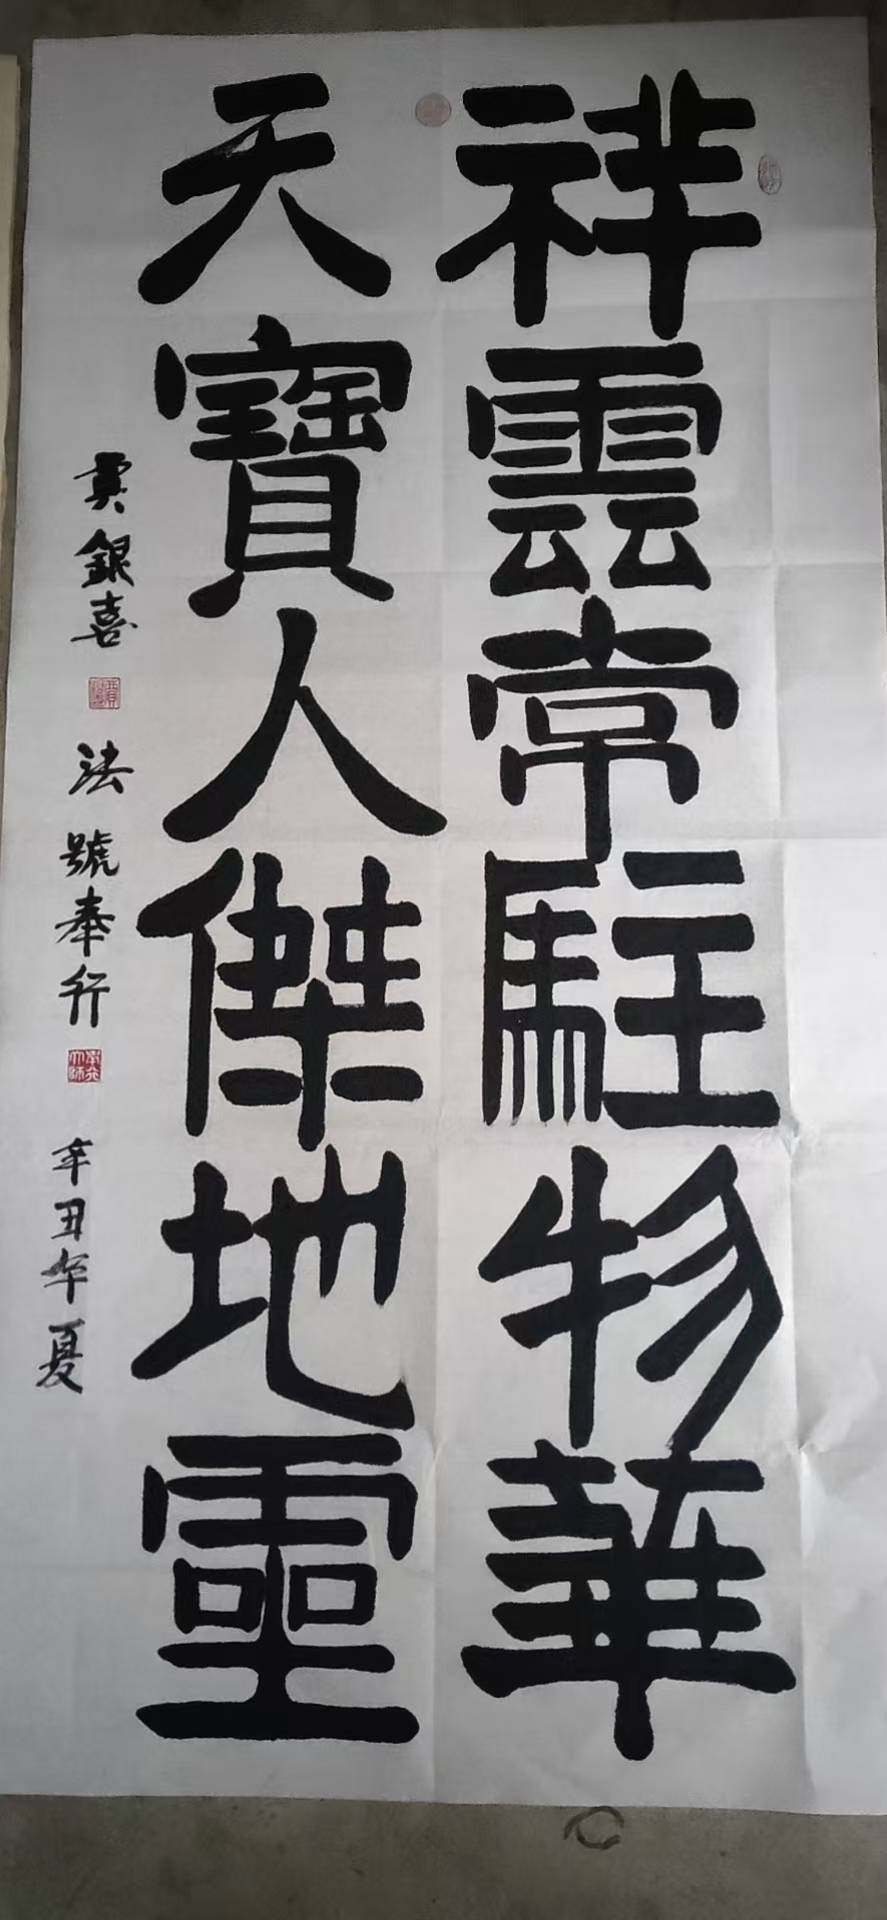 祥雲常駐物華
天寶人傑地靈
銀喜 法號奉行 辛丑年夏
奉行大師